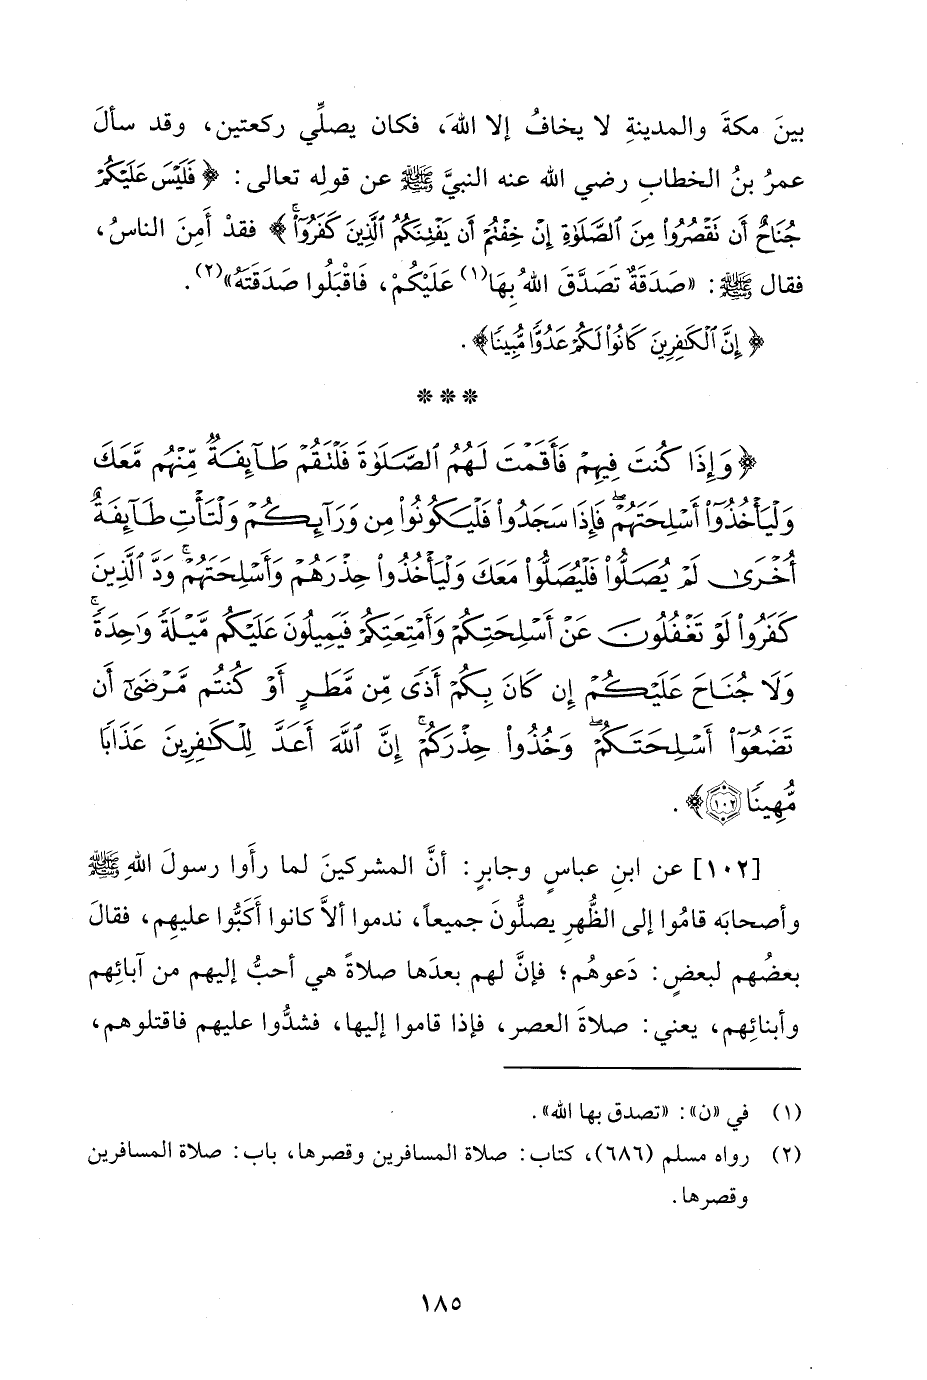 بينَ مكةَ والمدينةِ لا يخافُ إلا اللهَ، فكان يصلِّي ركعتين، وقد سألَ
عمرُ بنُ الخطابِ رضي الله عنه النبيَّ ﷺ عن قوله تعالى: ﴿فَلَيْسَ عَلَيْكُمْ
جُنَاحٌ أَن نَقْصُرُواْ مِنَ ٱلصَّلَوٰةِ إِنْ خِفْتُمْ أَن يَفْتِنَكُمُ ٱلَّذِينَ كَفَرُوٓاْ ۚ﴾ فقدْ أَمِنَ الناسُ،
فقال ﷺ: «صَدَقَةٌ تَصَدَّقَ اللهُ بِهَا(١) عَلَيْكُمْ، فَاقْبَلُوا صَدَقَتَهُ»(٢).
﴿إِنَّ ٱلْكَٰفِرِينَ كَانُواْ لَكُمْ عَدُوًّا مُّبِينًا﴾.
***
﴿وَإِذَا كُنتَ فِيهِمْ فَأَقَمْتَ لَهُمُ ٱلصَّلَوٰةَ فَلْتَقُمْ طَآئِفَةٌ مِّنْهُم مَّعَكَ
وَلْيَأْخُذُوٓاْ أَسْلِحَتَهُمْ ۖ فَإِذَا سَجَدُواْ فَلْيَكُونُواْ مِن وَرَآئِكُمْ وَلْتَأْتِ طَآئِفَةٌ
أُخْرَىٰ لَمْ يُصَلُّواْ فَلْيُصَلُّواْ مَعَكَ وَلْيَأْخُذُواْ حِذْرَهُمْ وَأَسْلِحَتَهُمْ ۗ وَدَّ ٱلَّذِينَ
كَفَرُواْ لَوْ تَغْفُلُونَ عَنْ أَسْلِحَتِكُمْ وَأَمْتِعَتِكُمْ فَيَمِيلُونَ عَلَيْكُم مَّيْلَةً وَٰحِدَةً ۚ
وَلَا جُنَاحَ عَلَيْكُمْ إِن كَانَ بِكُمْ أَذًى مِّن مَّطَرٍ أَوْ كُنتُم مَّرْضَىٰٓ أَن
تَضَعُوٓاْ أَسْلِحَتَكُمْ ۖ وَخُذُواْ حِذْرَكُمْ ۗ إِنَّ ٱللَّهَ أَعَدَّ لِلْكَٰفِرِينَ عَذَابًا
مُّهِينًا ١٠٢﴾.
[١٠٢] عن ابنِ عباسٍ وجابرٍ: أنَّ المشركينَ لما رأَوا رسولَ اللهِ ﷺ
وأصحابَه قامُوا إلى الظُّهرِ يصلُّونَ جميعاً، ندموا ألاَّ كانوا أَكَبُّوا عليهِم، فقالَ
بعضُهم لبعضٍ: دَعوهُم؛ فإنَّ لهم بعدَها صلاةً هي أحبُّ إليهم من آبائِهم
وأبنائِهم، يعني: صلاةَ العصر، فإذا قاموا إليها، فشدُّوا عليهم فاقتلوهم،
(١) في «ن»: «تصدق بها الله».
(٢) رواه مسلم (٦٨٦)، كتاب: صلاة المسافرين وقصرها، باب: صلاة المسافرين
وقصرها.
١٨٥